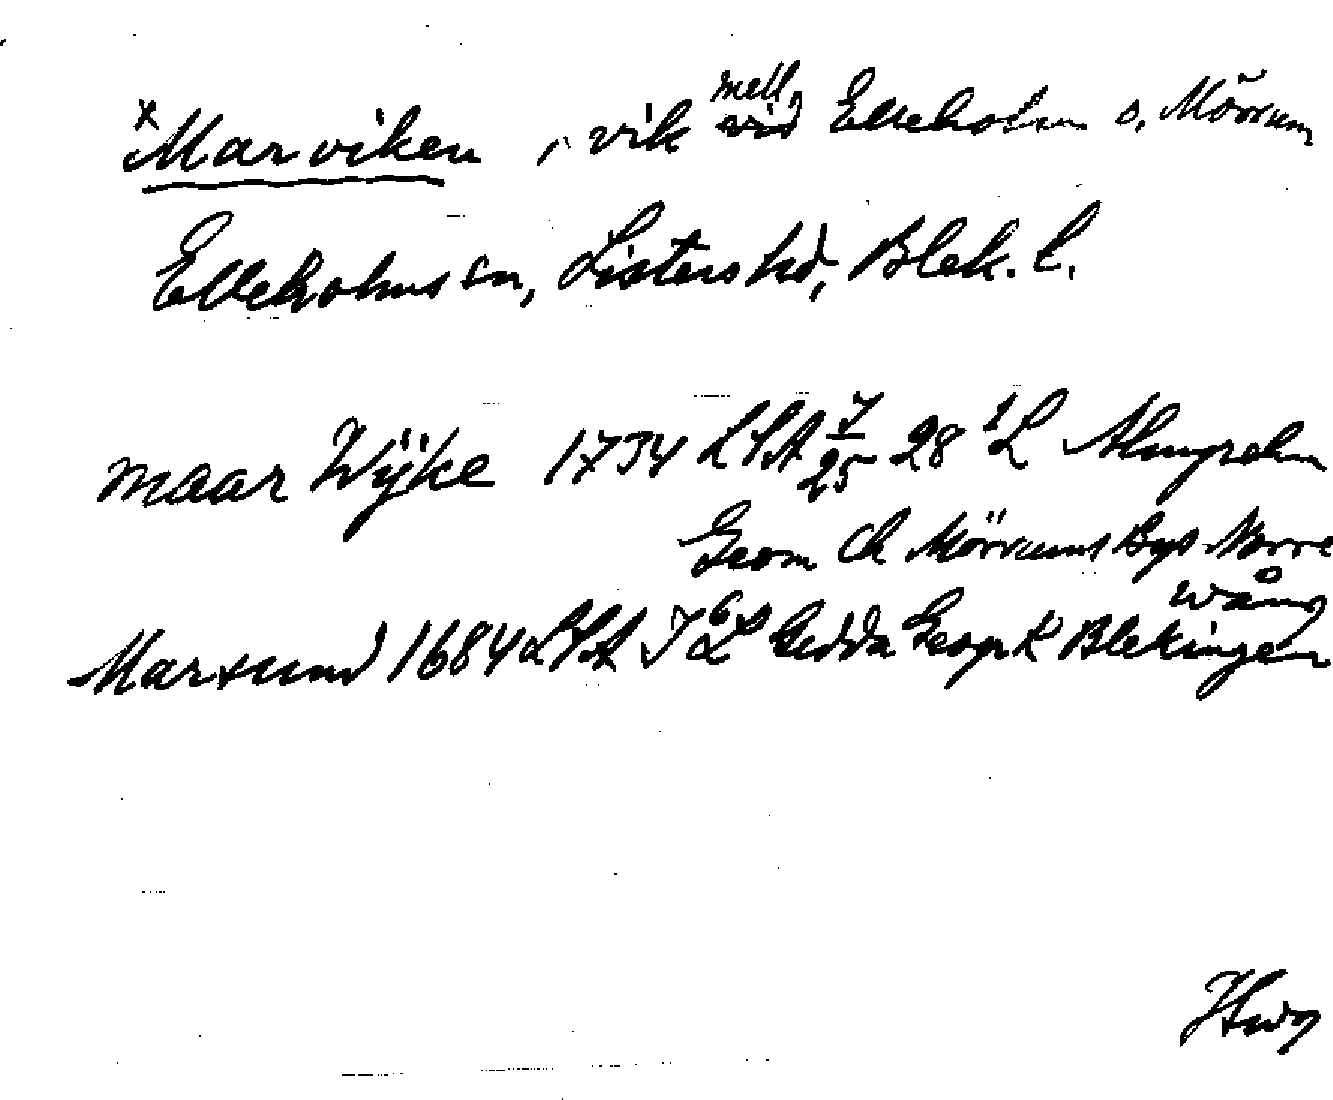 x Marviken, vik mell. vid Elleholm o. Mörrum
Elleholms sn, Listers hd, Blek. l.
maar Wijke 1734 LSA 7/25 28 1 L Almgrehn
Geom Ch Mörrums Bys Norre
wång
Marsund 1684 LSA I 6 L Gedda Geogr K Blekingen